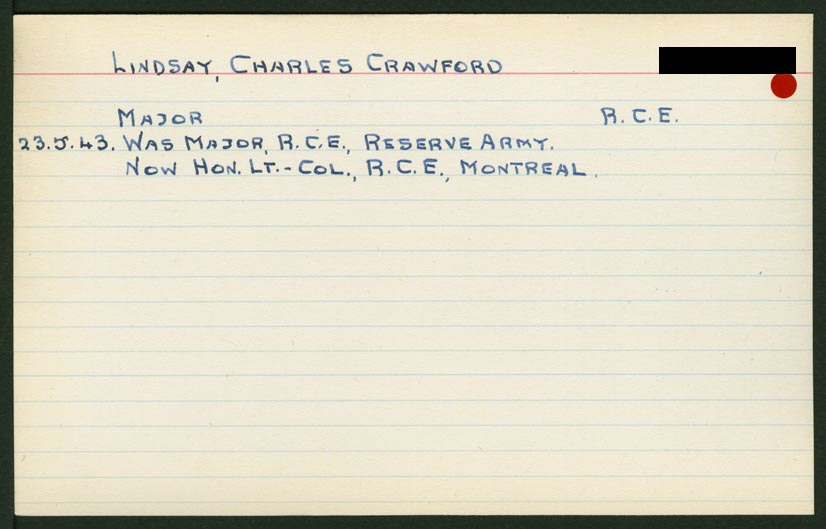 LINDSAY, CHARLES CRAWFORD
MAJOR R.C.E.
23.5.43. WAS MAJOR, R.C.E., RESERVE ARMY.
NOW HON. LT.-COL., R.C.E., MONTREAL.